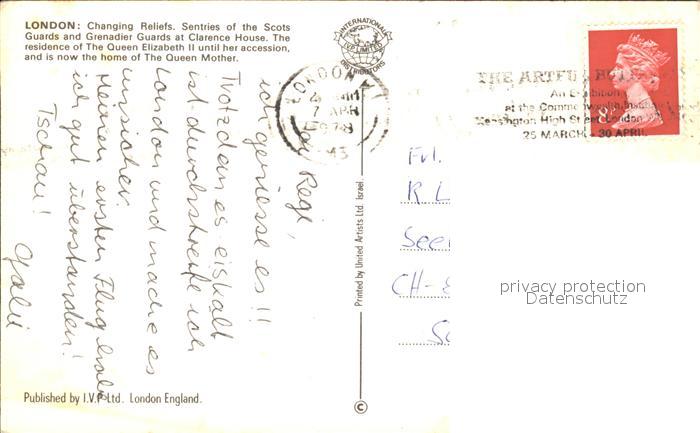 LONDON: Changing Reliefs. Sentries of the Scots
Guards and Grenadier Guards at Clarence House. The
residence of The Queen Elizabeth II until her accession,
and is now the home of The Queen Mother.
INTERNATIONAL
I.V.P. LIMITED
DISTRIBUTORS
LONDON
7 APR
1978
THE ARTFUL
An Exhibition
at the Commonwealth Institute
Kensington High Street London
25 MARCH - 30 APRIL
Regi,
ich geniesse es!!
Trotzdem es eiskalt
ist durchstreife ich
London und mache es
unsicher.
Meinen ersten Flug habe
ich gut überstanden!
Tschau!
Frl.
R L
See
CH-
Printed by United Artists Ltd. Israel.
©
Published by I.V.P Ltd. London England.
privacy protection
Datenschutz